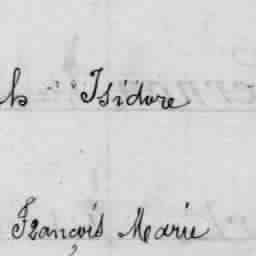 h Isidore
François Marie